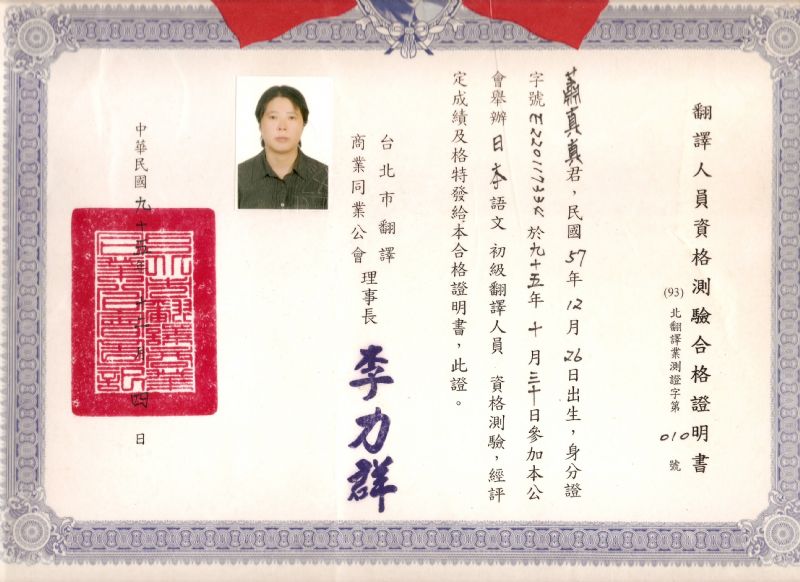 翻譯人員資格測驗合格證明書
(93)北翻譯業測證字第010號
蕭真真君，民國57年12月26日出生，身分證
字號 於九十五年十月三十日參加本公
會舉辦日本語文初級翻譯人員資格測驗，經評
定成績及格特發給本合格證明書，此證。
台北市翻譯
商業同業公會
理事長
李力群
中華民國九十五年十一月四日